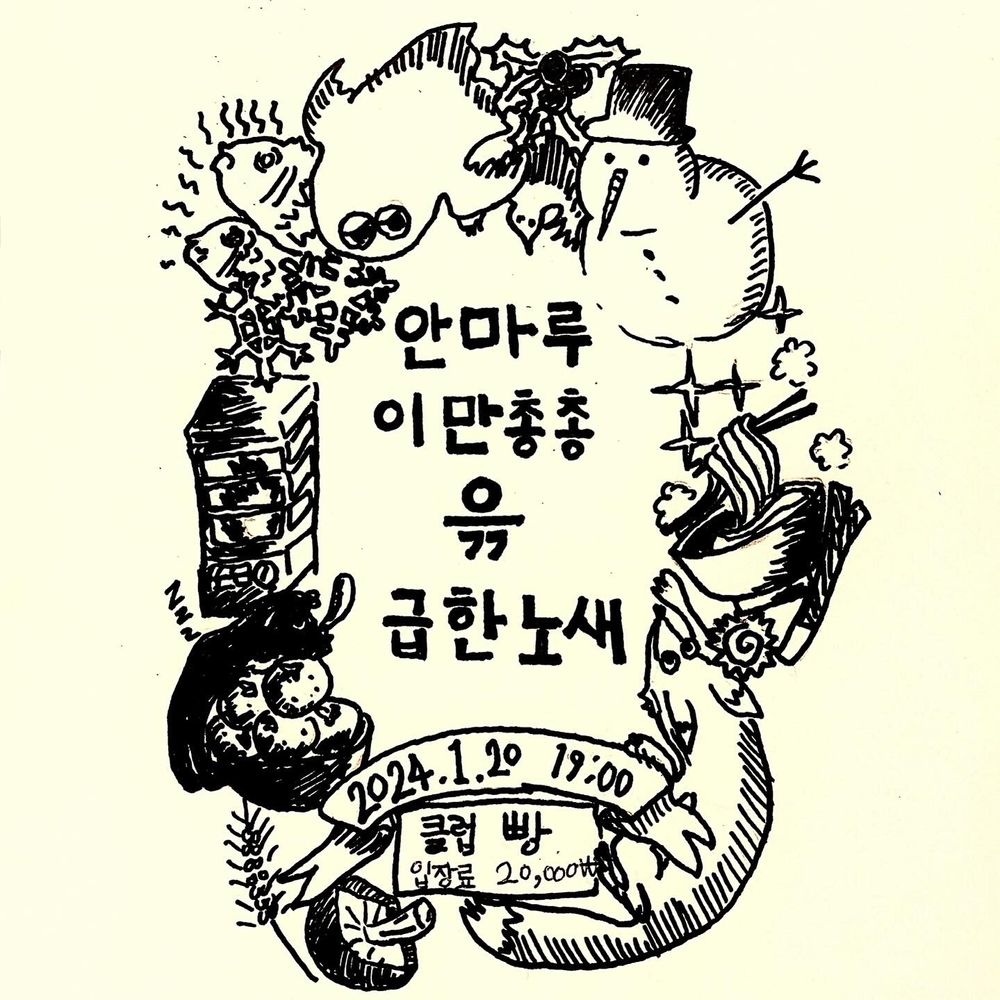 안마루
이만총총
윢
급한노새
2024.1.20 19:00
클럽 빵
입장료 20,000₩